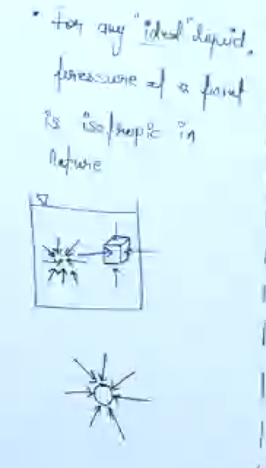 • For any "ideal" liquid,
pressure of a point
is isotropic in
nature